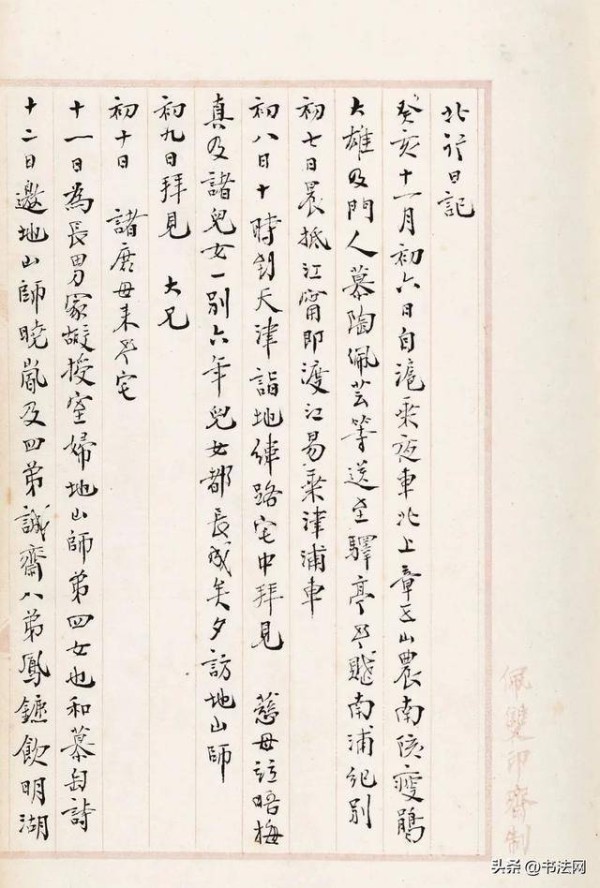 北行日記
癸亥十一月初六日自滬乘夜車北上章山農南陔瘦鵑
大雄及門人慕陶佩芸等送至驛亭予賦南浦紀別
初七日晨抵江甯即渡江易乘津浦車
初八日十時到天津詣地緯路宅中拜見 慈母並晤梅
真及諸兒女一別六年兒女都長成矣夕訪地山師
初九日拜見 大兄
初十日 諸庶母来予宅
十一日為長男家嘏授室婦地山師第四女也和慕匋詩
十二日邀地山師曉嵐及四弟誠齋八弟鳳鑣飲明湖
佩雙印齋制
头条 @书法网